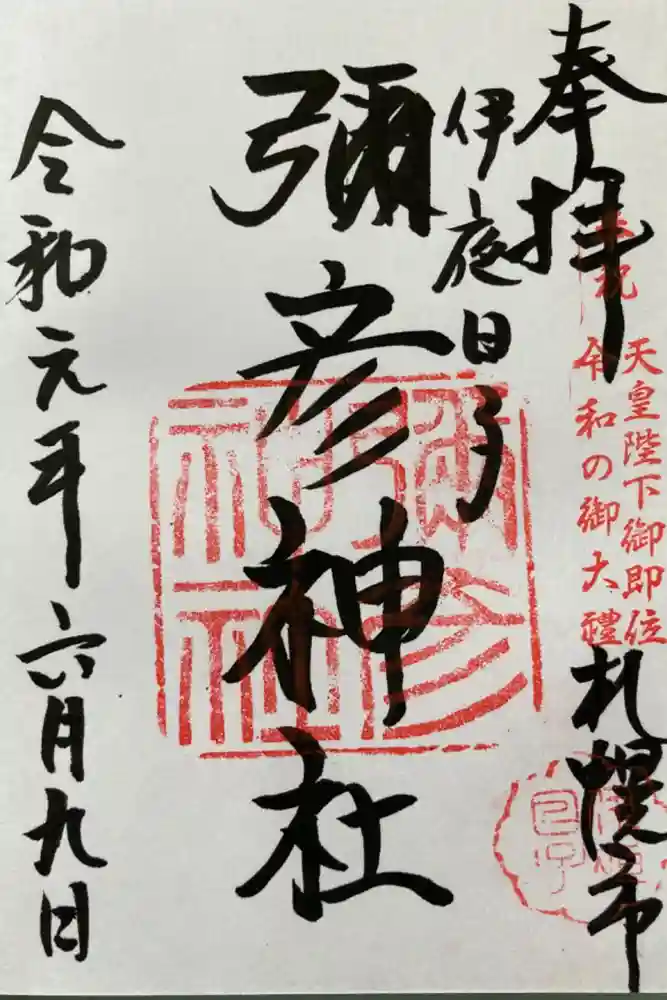 奉拝
奉祝
天皇陛下御即位
令和の御大禮
札幌市
伊夜日子
彌彦神社
彌彦神社
令和元年六月九日